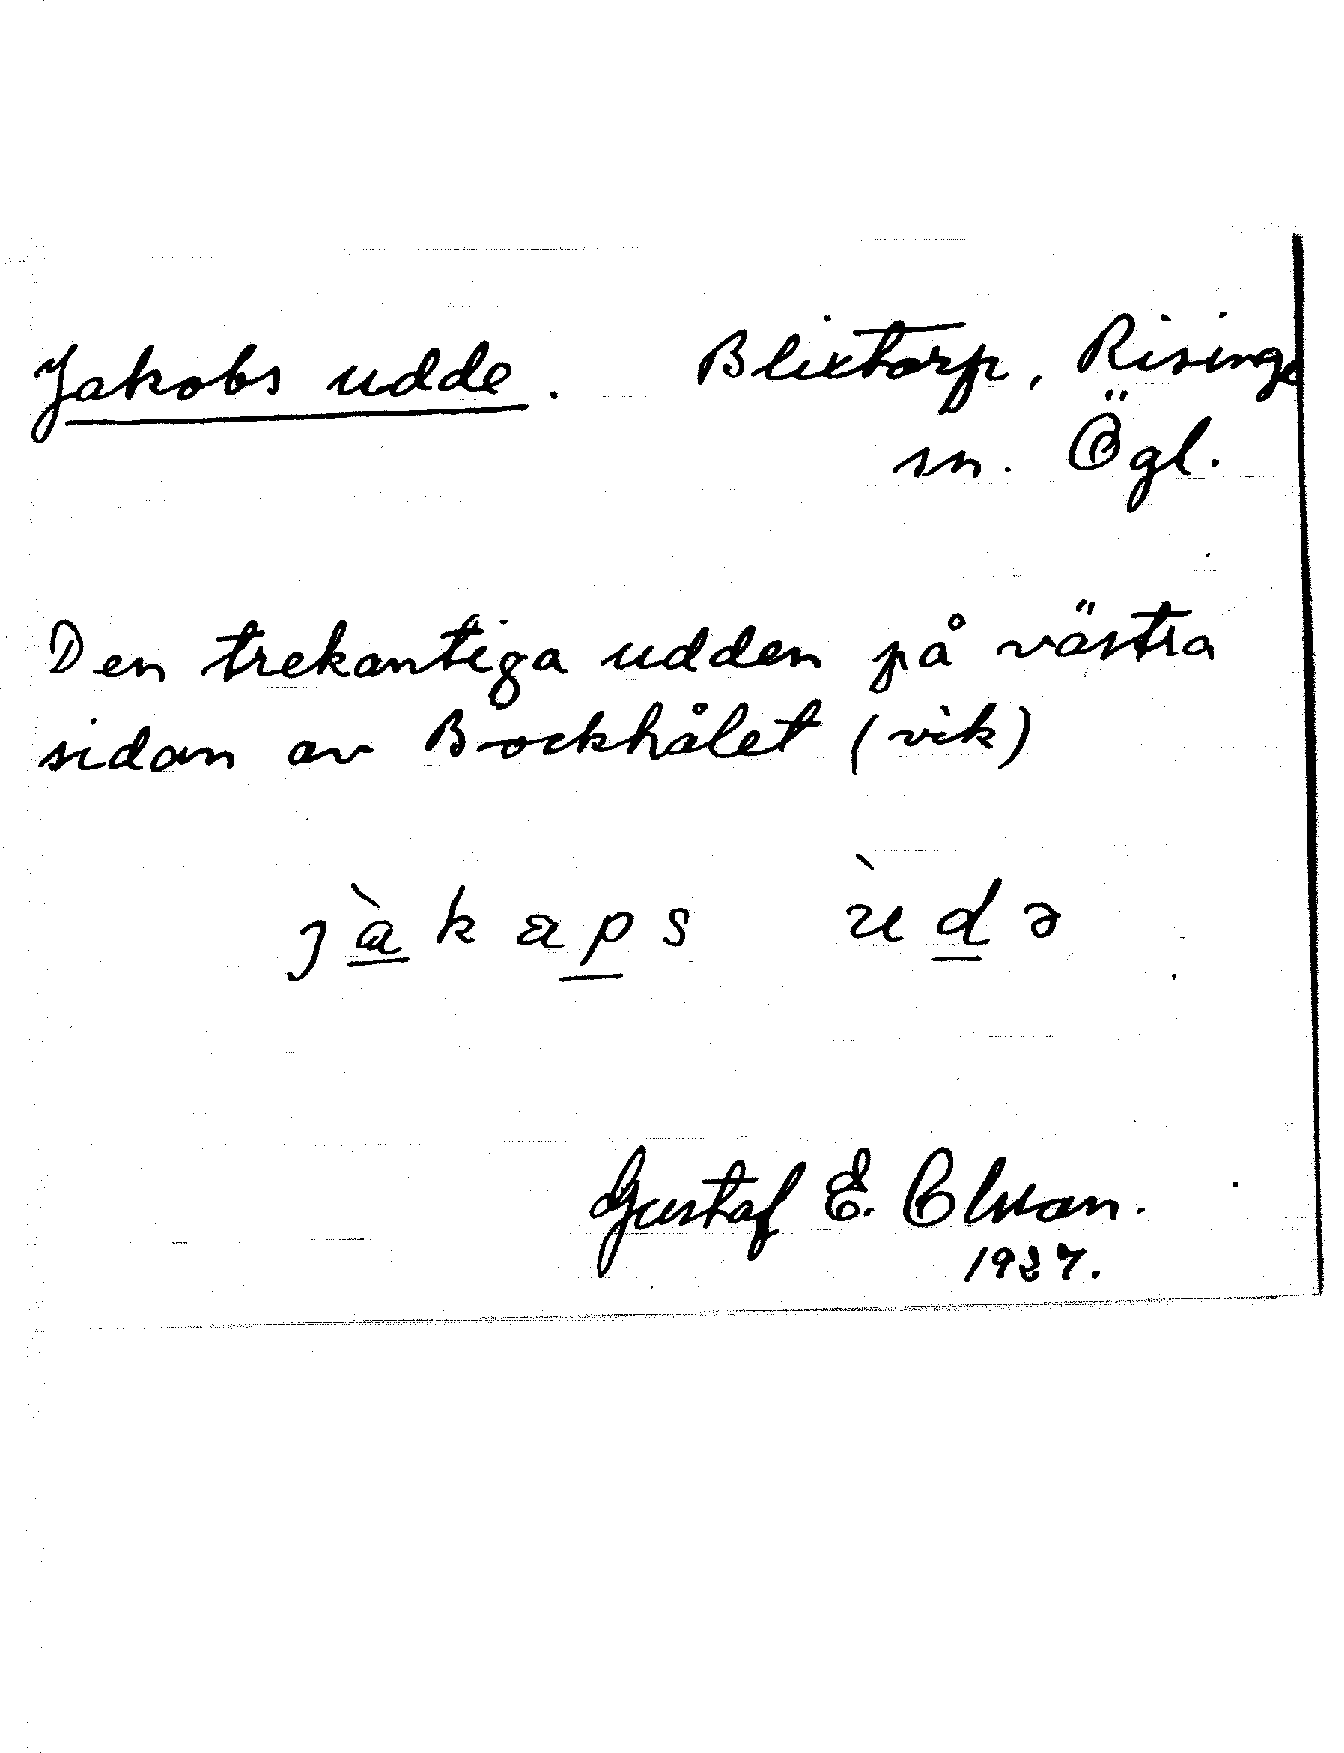 Jakobs udde. Blixtorp, Risinge
sn. Ögl.
Den trekantiga udden på västra
sidan av Bockhålet (vik)
jàkaps ùdə
Gustaf E. Olsson.
1927.